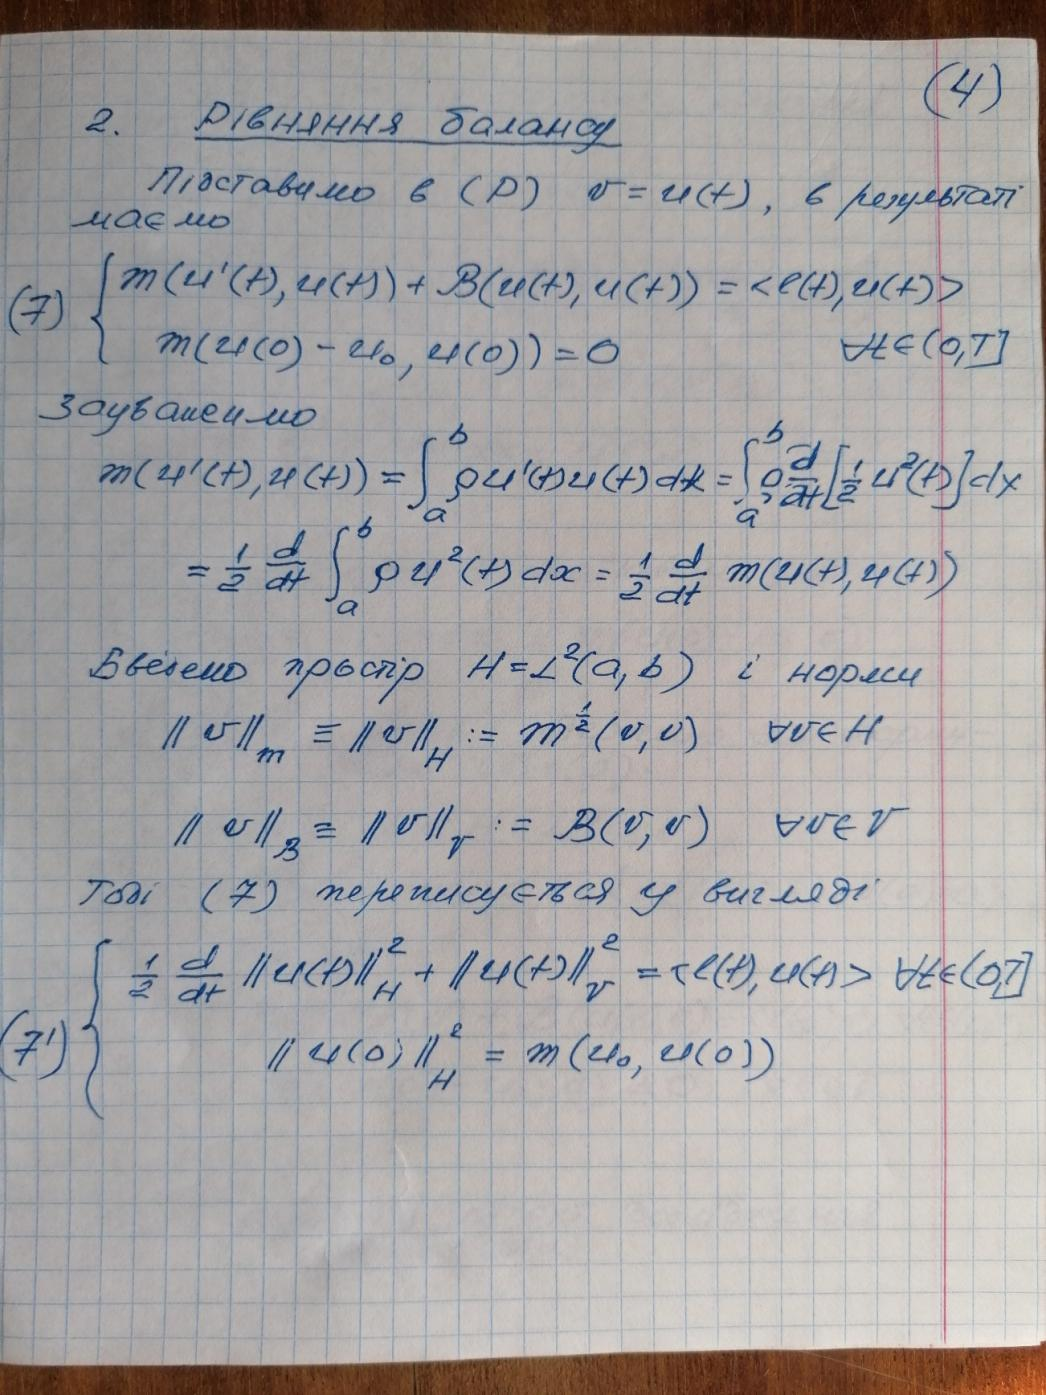 (4)
2. Рівняння балансу
Підставимо в (P) v = u(t), в результаті
маємо
(7) { m(u'(t), u(t)) + B(u(t), u(t)) = <l(t), u(t)>
m(u(0) - u₀, u(0)) = 0 ∀t∈(0,T]
Зауважимо
m(u'(t), u(t)) = ∫ₐᵇ ρu'(t)u(t)dx = ∫ₐᵇ ρ d/dt [1/2 u²(t)]dx
= 1/2 d/dt ∫ₐᵇ ρu²(t)dx = 1/2 d/dt m(u(t), u(t))
Введемо простір H = L²(a,b) і норми
||v||_m ≡ ||v||_H := m^{1/2}(v,v) ∀v∈H
||v||_B ≡ ||v||_V := B(v,v) ∀v∈V
Тоді (7) переписується у вигляді
(7') { 1/2 d/dt ||u(t)||²_H + ||u(t)||²_V = <l(t), u(t)> ∀t∈(0,T]
||u(0)||²_H = m(u₀, u(0))